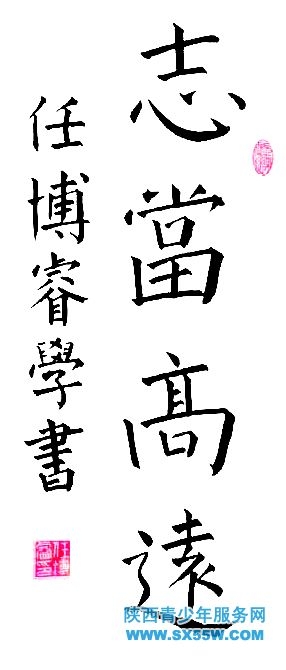 志當髙遠
任博睿學書
任博睿印
陕西青少年服务网
www.sx55w.com